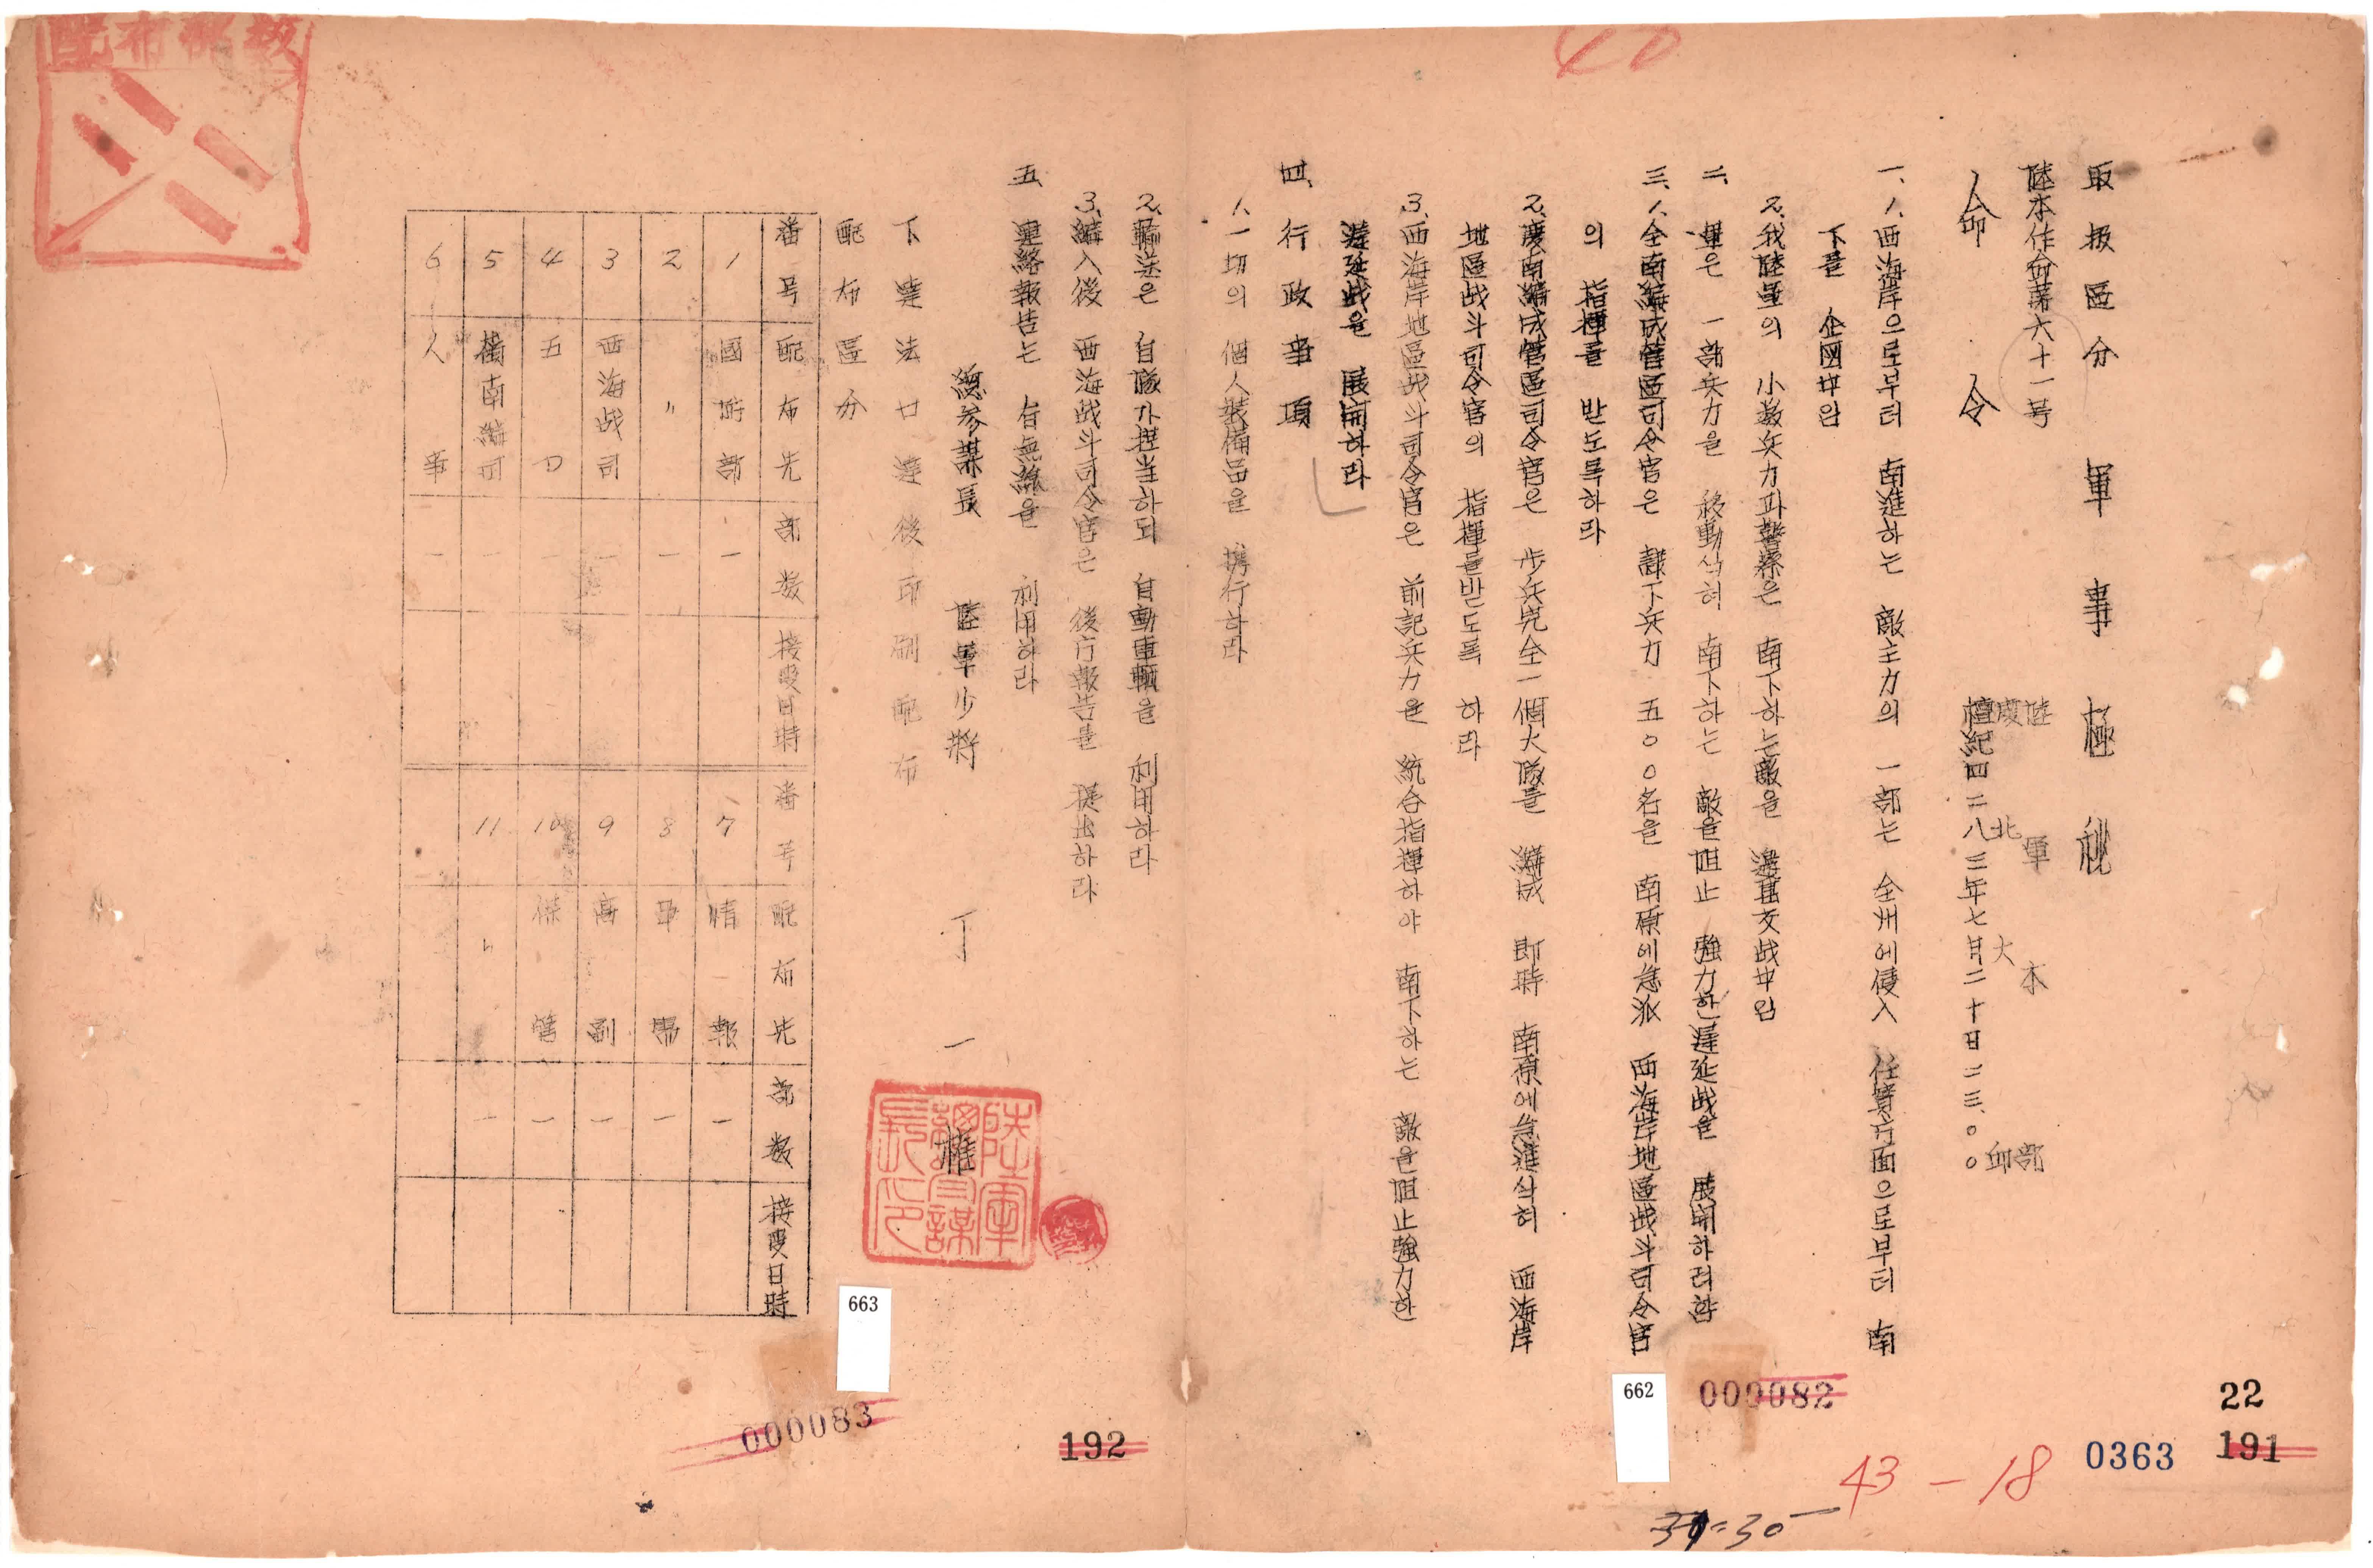 取扱區分 軍事極秘
陸本作命第六十一号
陸軍本部
慶北大邱
命令
檀紀四二八三年七月二十日二三.〇〇
一、1、西海岸으로부터 南進하는 敵主力의 一部는 全州에侵入 任實方面으로부터 南
下를 企図中임
2、我陸軍의 小数兵力과警察은 南下하는敵을 邀擊交战中임
二、軍은 一部兵力을 移動식혀 南下하는 敵을阻止 強力한遅延战을 展開하려함
三、1、全南編成管區司令官은 隷下兵力 五〇〇名을 南原에急派 西海岸地區战斗司令官
의 指揮를 받도록하라
2、慶南編成管區司令官은 步兵完全一個大隊를 編成 即時 南原에急進식혀 西海岸
地區战斗司令官의 指揮를받도록 하라
3、西海岸地區战斗司令官은 前記兵力을 統合指揮하야 南下하는 敵을阻止強力한
遅延战을 展開하라
四、行政事項
1、一切의 個人裝備品을 携行하라
2、輸送은 自隊가担当하되 自動車輛을 利用하라
3、編入後 西海战斗司令官은 後方報告를 提出하라
五、連絡報告는 有無線을 利用하라
總參謀長 陸軍少將 丁一權
下達法 口達後印刷配布
配布區分
番号 配布先 部数 接受日時 番号 配布先 部数 接受日時
1 國防部 一 7 情報 一
2 〃 一 8 軍需 一
3 西海战司 一 9 高副 一
4 五D 一 10 保管 一
5 慶南編司 一 11 〃 一
6 人事 一
陸軍總參謀長印
40
663
000083
192
662
000082
22
191
0363
43-18